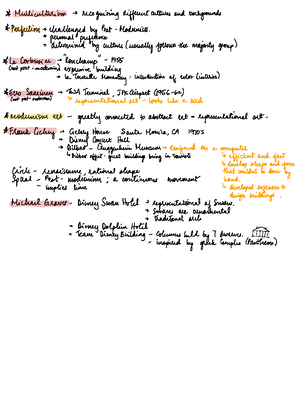 * Multiculturalism → recognizing different cultures and backgrounds
* Perfection → challenged by Post-Modernists.
→ personal preference
→ determined by culture (usually follows the majority group)
* Le Corbusier - "Ronchamp" - 1955
(not post-modernism) → expressive building
→ La Tourette Monastery, introduction of color (interior)
* Eero Saarinen - TWA Terminal, JFK Airport (1956-62)
(not post-modernism) ↳ representational art - looks like a bird
* modernism art - greatly connected to abstract art ≠ representational art.
* Frank Gehry - Gehry House Santa Monica, CA 1970s
→ Disney Concert Hall
→ Bilbao - Guggenheim Museum → designed on a computer
↳ Bilbao effect - great building bring in tourists
↳ efficient and fast
↳ develop shapes and forms that couldn't be done by hand.
↳ developed software to design buildings.
Circle - renaissance, rational shape
Spiral - Post-modernism; a continuous movement
- implies time
Michael Graves - Disney Swan Hotel → representational of swans.
→ swans are ornamental
→ traditional arch
→ Disney Dolphin Hotel
→ Team Disney Building - Columns held by 7 dwarves.
- inspired by greek temples (Pantheon)